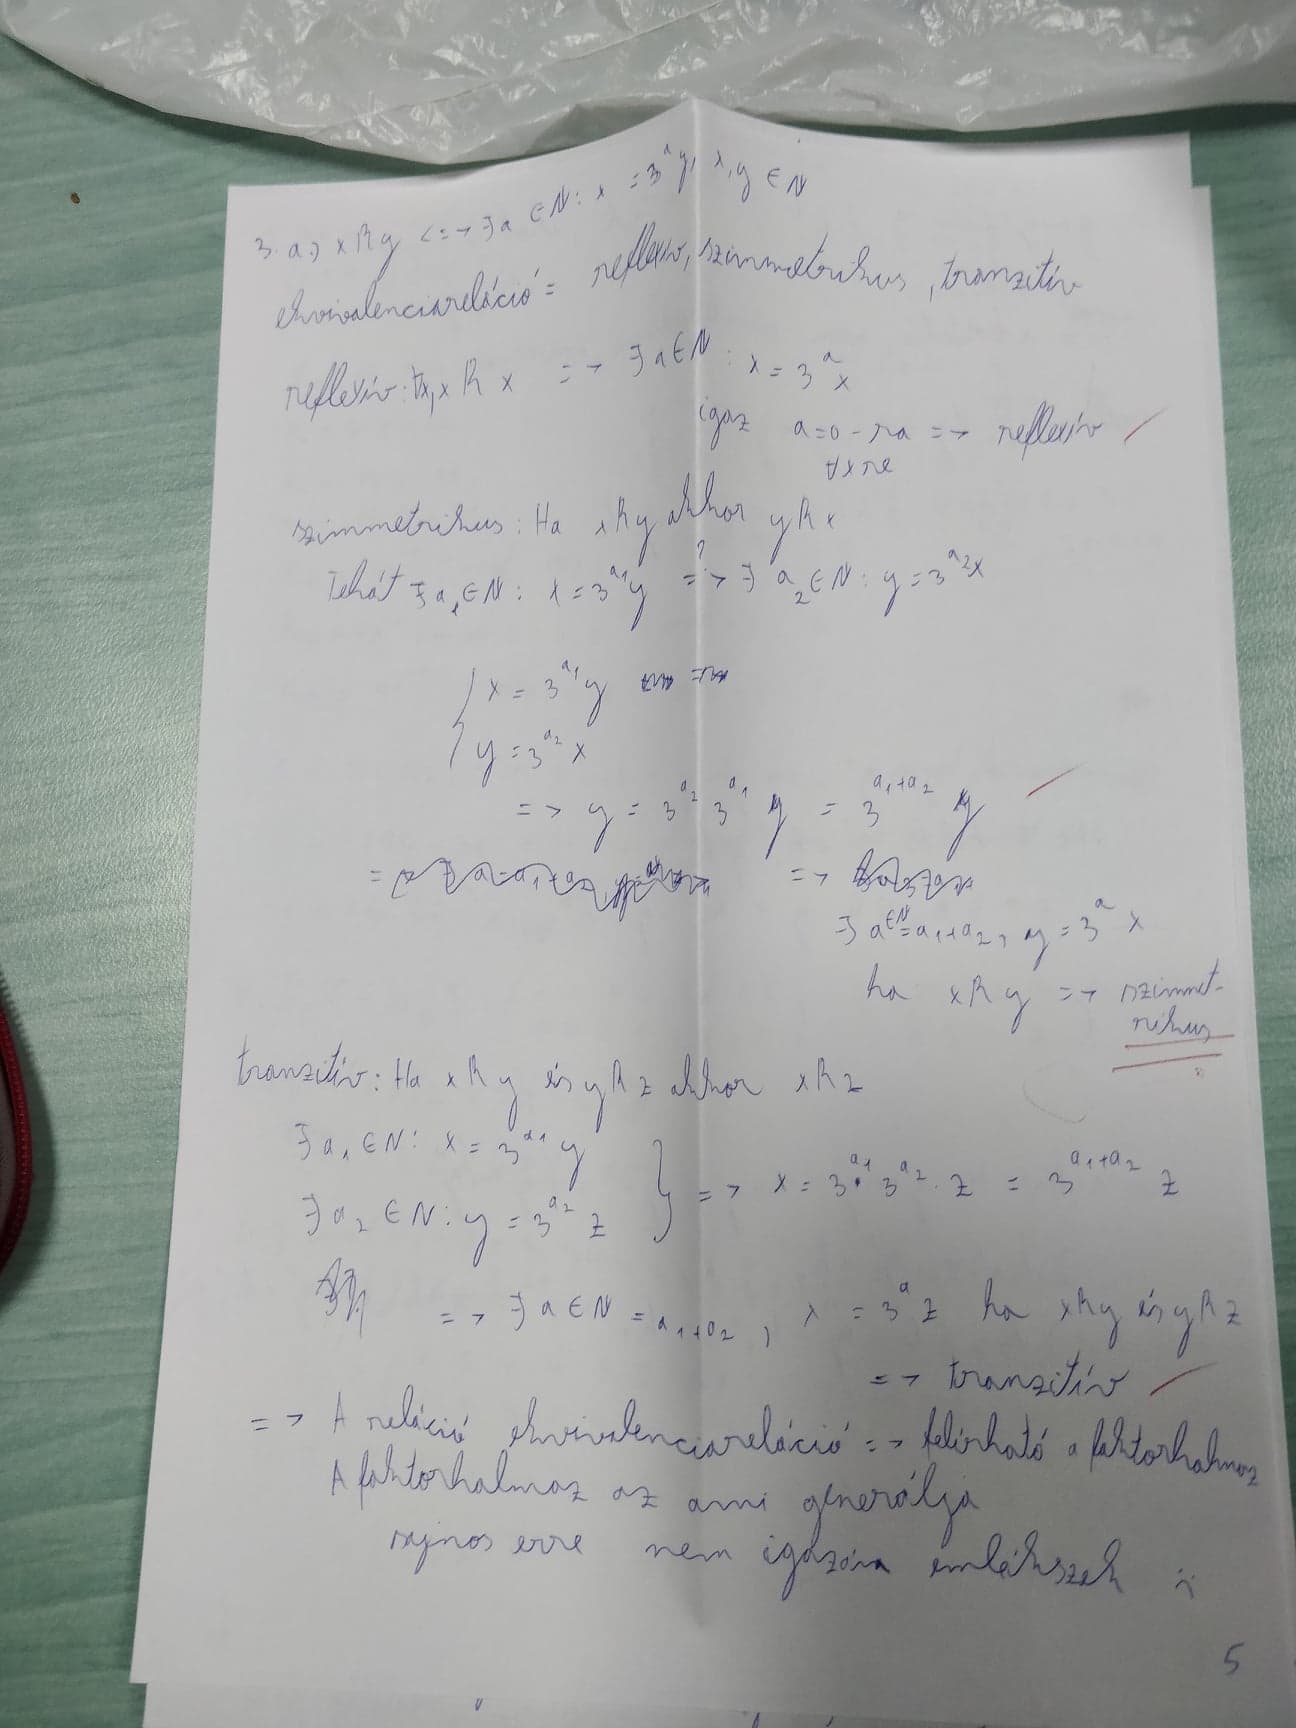 3. a.) xRy <=> ∃a ∈N: x = 3^a y, x,y ∈ N
ekvivalenciareláció = reflexív, szimmetrikus, tranzitív
reflexív: ∀x, x R x => ∃a∈N : x = 3^a x
igaz a=0-ra => reflexív
∀x re
szimmetrikus: Ha xRy akkor yRx
Tehát ∃a₁∈N: x = 3^a₁ y ?=> ∃ a₂∈N: y = 3^a₂ x
x = 3^a₁ y
y = 3^a₂ x
=> y = 3^a₂ 3^a₁ y = 3^(a₁+a₂) y
=>
∃ a∈N = a₁+a₂, y = 3^a x
ha xRy => szimmet-
rikus
tranzitív: Ha xRy és yRz akkor xRz
∃a₁∈N: x = 3^a₁ y
∃a₂∈N: y = 3^a₂ z } => x = 3^a₁ · 3^a₂ · z = 3^(a₁+a₂) z
=> ∃ a∈N = a₁+a₂, x = 3^a z ha xRy és yRz
=> tranzitív
=> A reláció ekvivalenciareláció => felírható a faktorhalmaz
A faktorhalmaz az ami generálja
sajnos erre nem igazán emlékszek :(
5